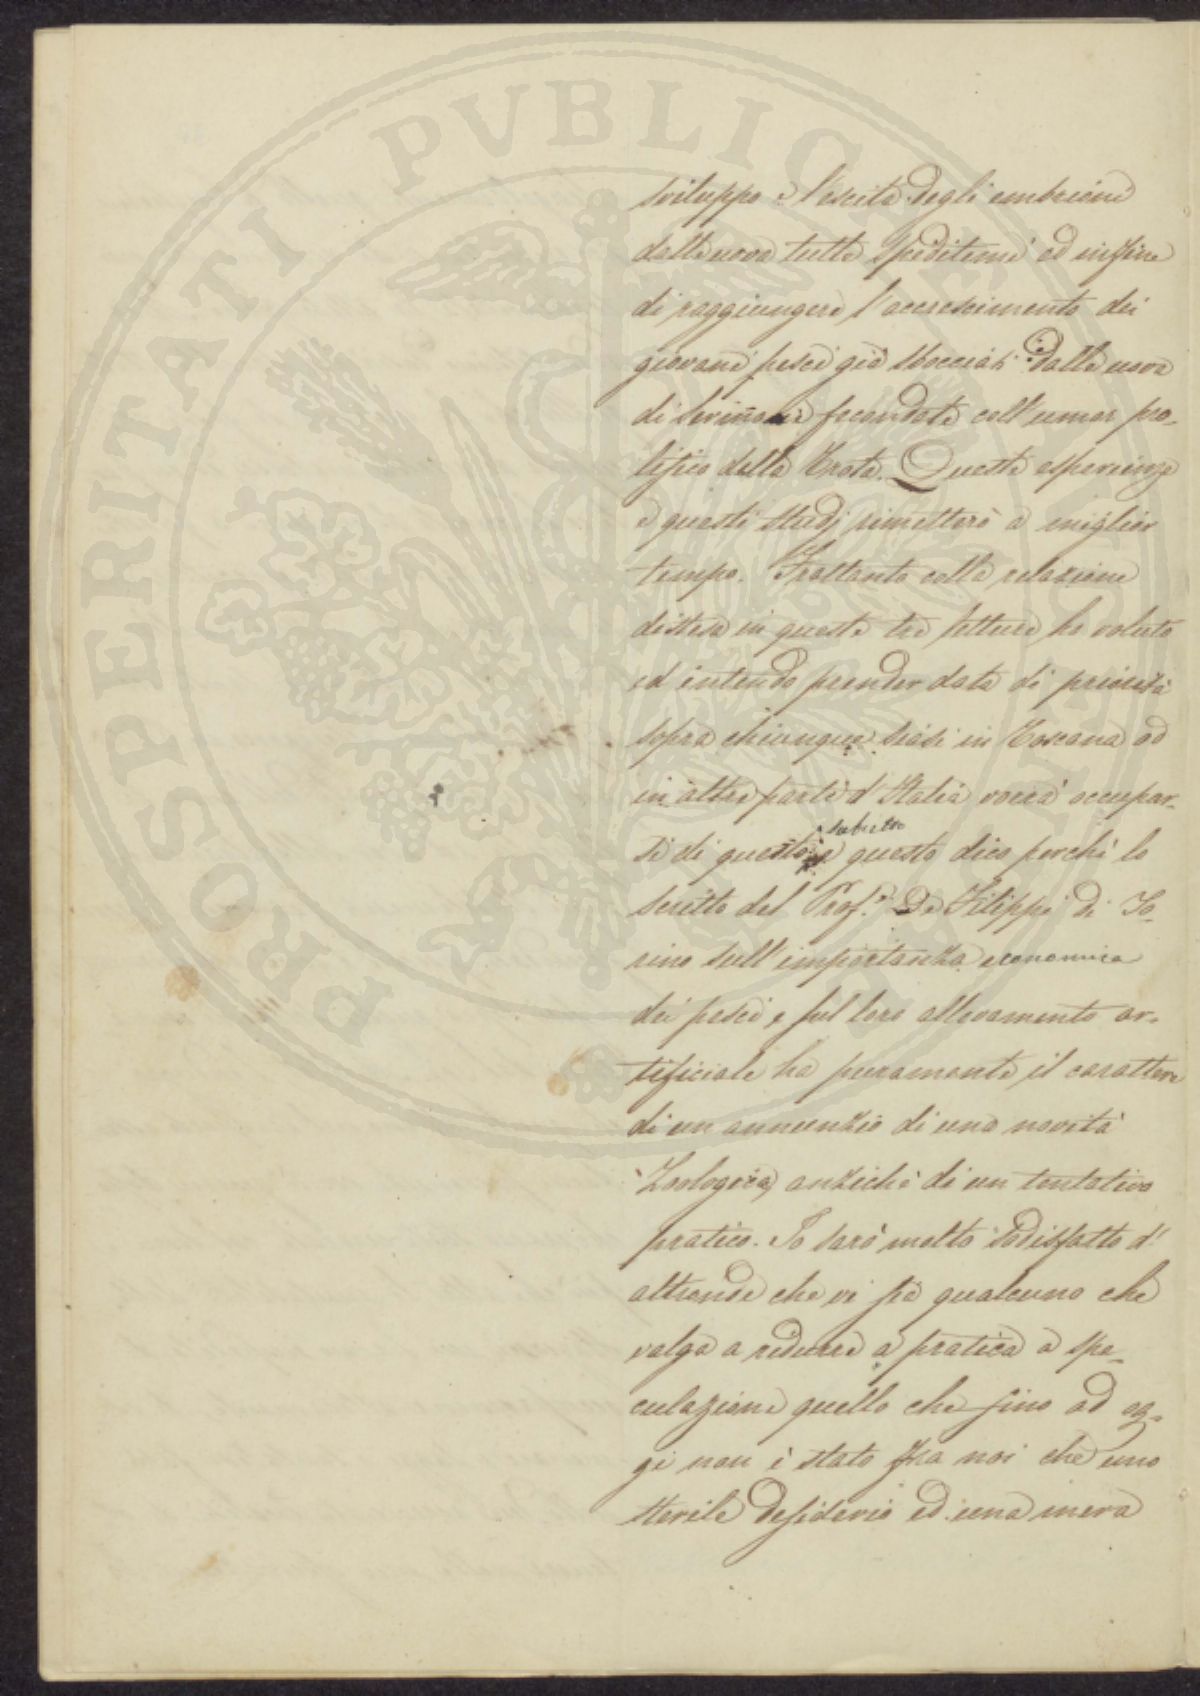 PROSPERITATI PVBLICAE
sviluppo e l'escita degli embrioni
dalle uova tutte speditemi ed infine
di raggiungere l'accrescimento dei
giovani pesci già sbocciati dalle uova
di fecondate coll'umor pro-
lifico della Trota. Queste esperienze
e questi studj rimetterò a miglior
tempo. Frattanto colla relazione
distesa in queste tre letture ho voluto
ed intendo prender data di priorità
sopra chiunque siasi in Toscana od
in altre parti d'Italia vorrà occupar-
subietto
si di questo e questo dico perchè lo
scritto del Prof.e De Filippi di To-
rino sull'importanza economica
dei pesci e sul loro allevamento ar-
tificiale ha puramente il carattere
di un annunzio di una novità
Zoologica, anzichè di un tentativo
pratico. Io sarò molto sodisfatto d'
altronde che vi sia qualcuno che
valga a ridurre a pratica a spe-
culazione quello che fino ad og-
gi non è stato fra noi che uno
sterile desiderio ed una mera